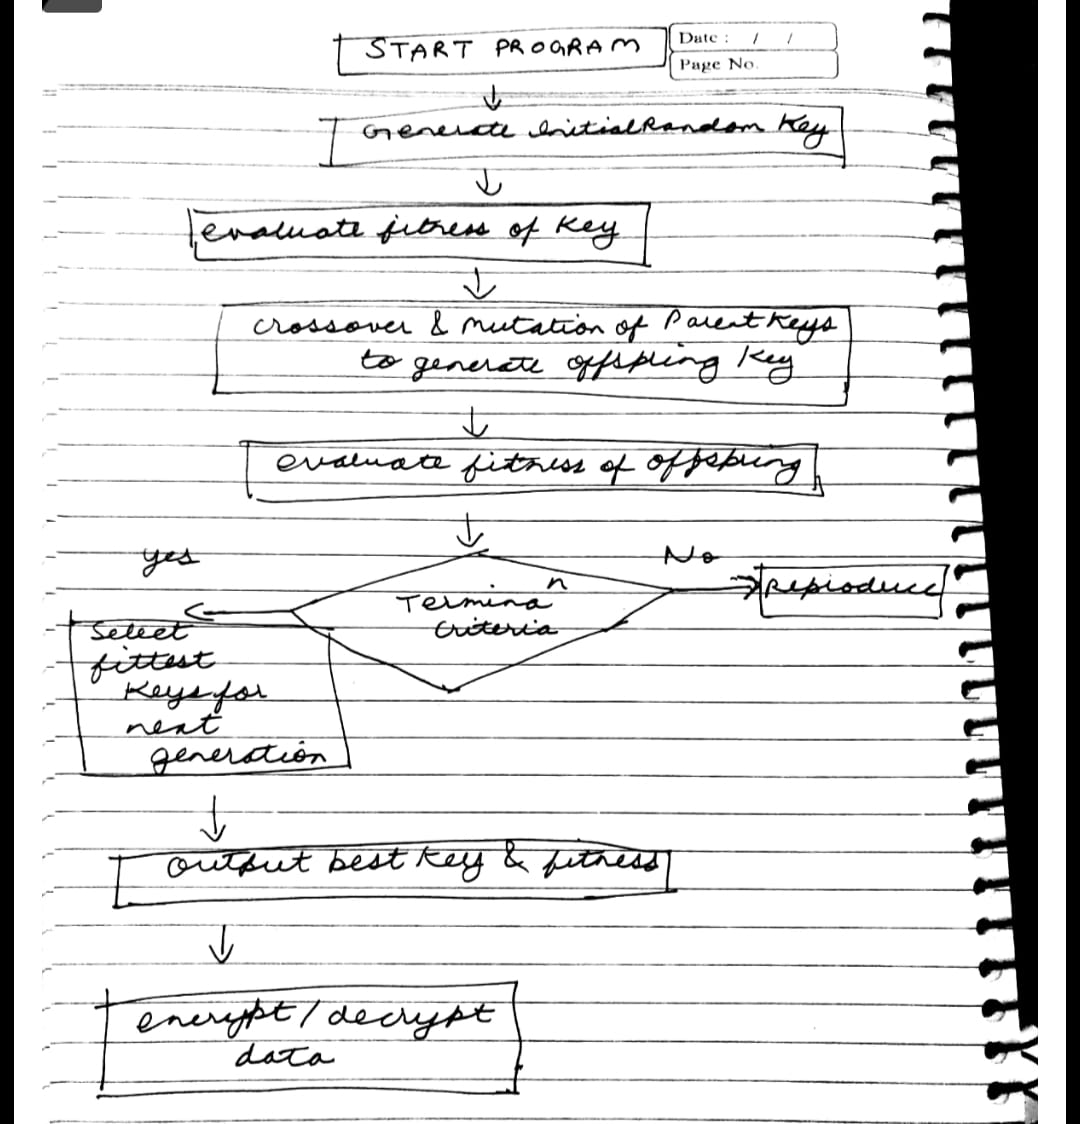 START PROGRAM
Date : / /
Page No.
Generate InitialRandom Key
evaluate fitness of Key
crossover & mutation of Parent Keys
to generate offspring Key
evaluate fitness of offspring
yes
No
n
Termina
Criteria
Reproduce
Select
fittest
Keys for
next
generation
output best key & fitness
encrypt / decrypt
data